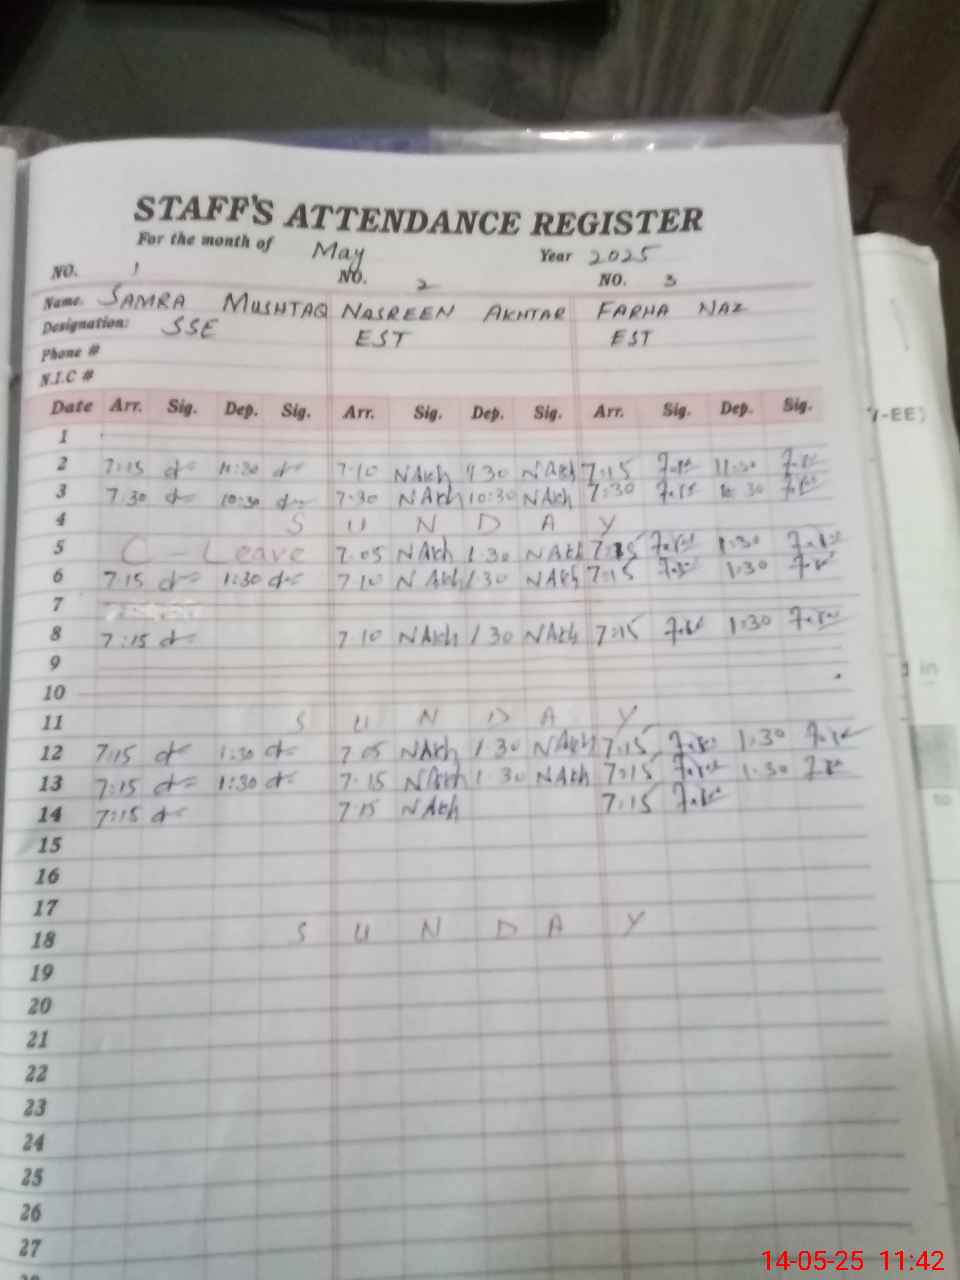 STAFF'S ATTENDANCE REGISTER
For the month of May Year 2025
NO. 1 NO. 2 NO. 3
Name. SAMRA MUSHTAQ NASREEN AKHTAR FARHA NAZ
Designation: SSE EST EST
Phone #
N.I.C #
Date Arr. Sig. Dep. Sig. Arr. Sig. Dep. Sig. Arr. Sig. Dep. Sig.
1
2 7:15 11:30 7.10 NAkh 11 30 NAkh 7:15 11:30
3 7:30 10:30 7.30 NAkh 10:30 NAkh 7:30 10 30
4 S U N D A Y
5 C - Leave 7.05 NAkh 1.30 NAkh 7:15 1:30
6 7:15 1:30 7.10 NAkh 1 30 NAkh 7:15 1:30
7
8 7:15 7.10 NAkh 1 30 NAkh 7:15 1:30
9
10
11 S U N D A Y
12 7:15 1:30 7.05 NAkh 1.30 NAkh 7:15 1:30
13 7:15 1:30 7.15 NAkh 1.30 NAkh 7:15 1:30
14 7:15 7 15 NAkh 7:15
15
16
17
18 S U N D A Y
19
20
21
22
23
24
25
26
27
14-05-25 11:42